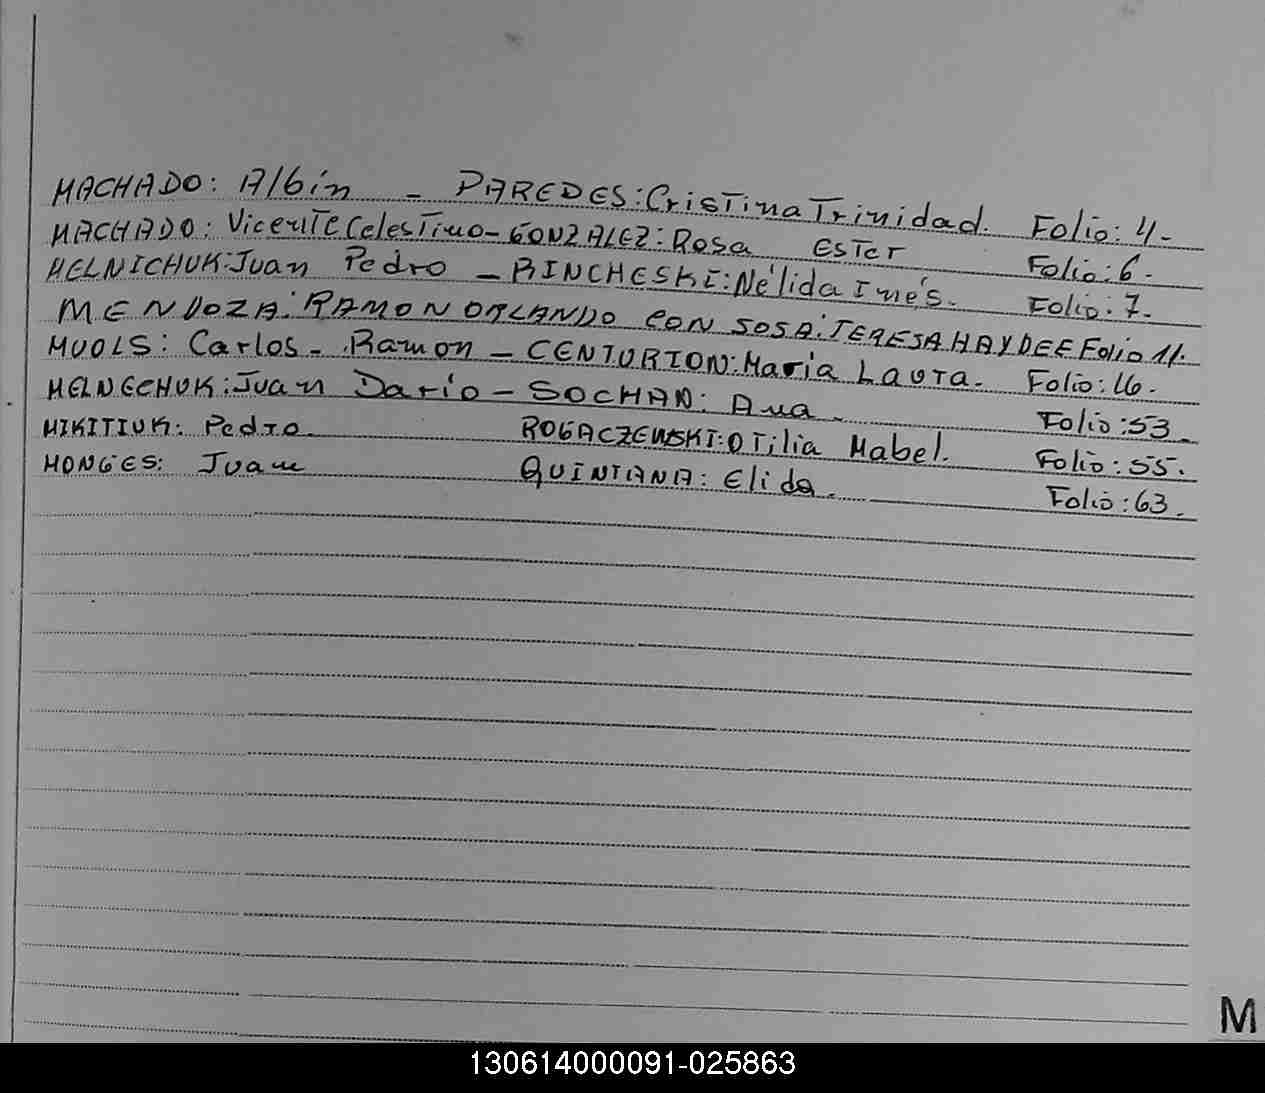 MACHADO: Albin - PAREDES: Cristina Trinidad. Folio: 4.-
MACHADO: Vicente Celestino - GONZALEZ: Rosa ESTer Folio: 6.-
MELNICHUK: Juan Pedro - RINCHESKI: Nélida Inés. Folio: 7.-
MENDOZA: RAMON ORLANDO CON SOSA: TERESA HAYDEE Folio 11.
MUOLS: Carlos - Ramon - CENTURION: Maria Laura. Folio: 16.-
MELNECHUK: Juan Dario - SOCHAN: Ana. Folio: 53.-
MIKITIUK: Pedro ROGACZEWSKI: OTilia Mabel. Folio: 55.
MONGES: Juan QUINTANA: Elida. Folio: 63.-
M
130614000091-025863